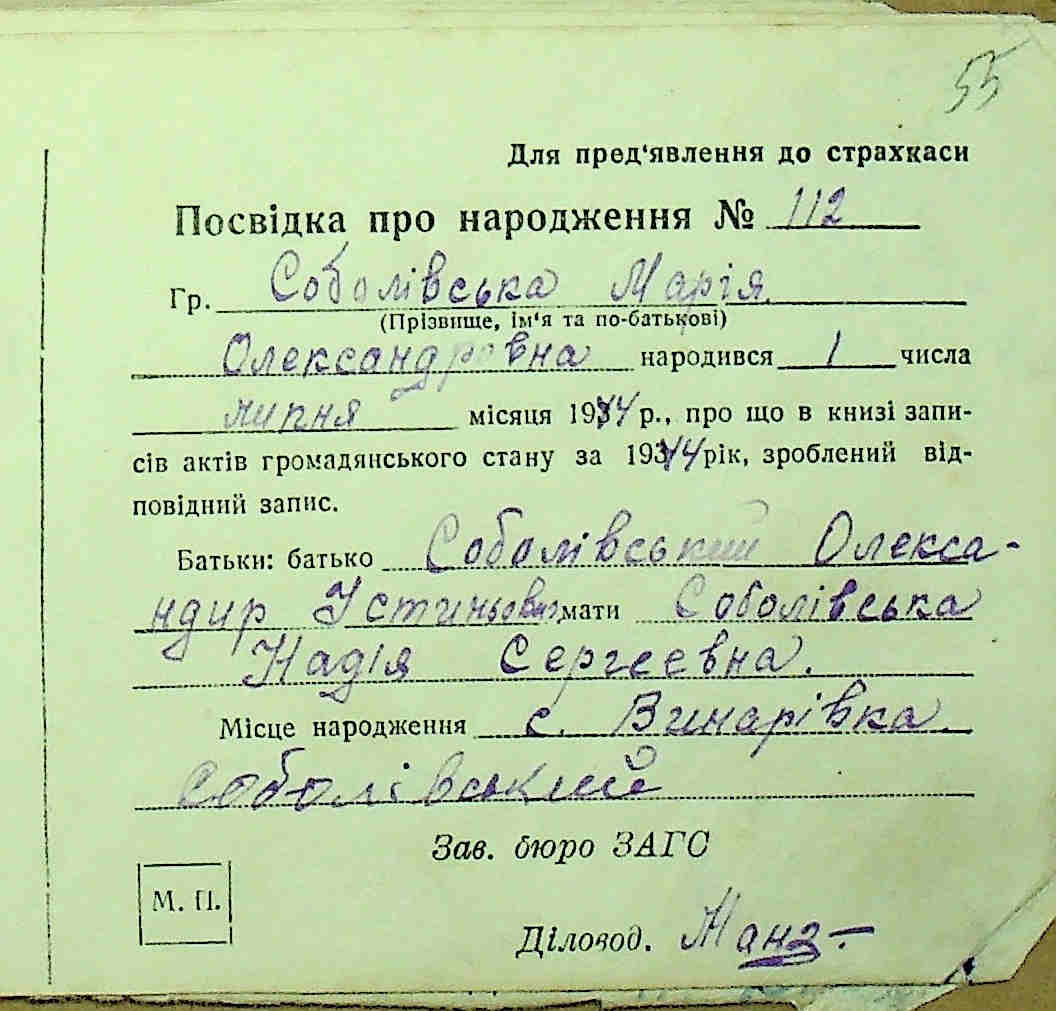 55
Для пред'явлення до страхкаси
Посвідка про народження № 112
Гр. Соболівська Марія
(Прізвище, ім'я та по-батькові)
Олександровна народився 1 числа
липня місяця 1944 р., про що в книзі запи-
сів актів громадянського стану за 1944 рік, зроблений від-
повідний запис.
Батьки: батько Соболівський Олекса-
ндир Устиньович, мати Соболівська
Надія Сергеевна.
Місце народження с. Винарівка
Соболівський
Зав. бюро ЗАГС
М. П.
Діловод.